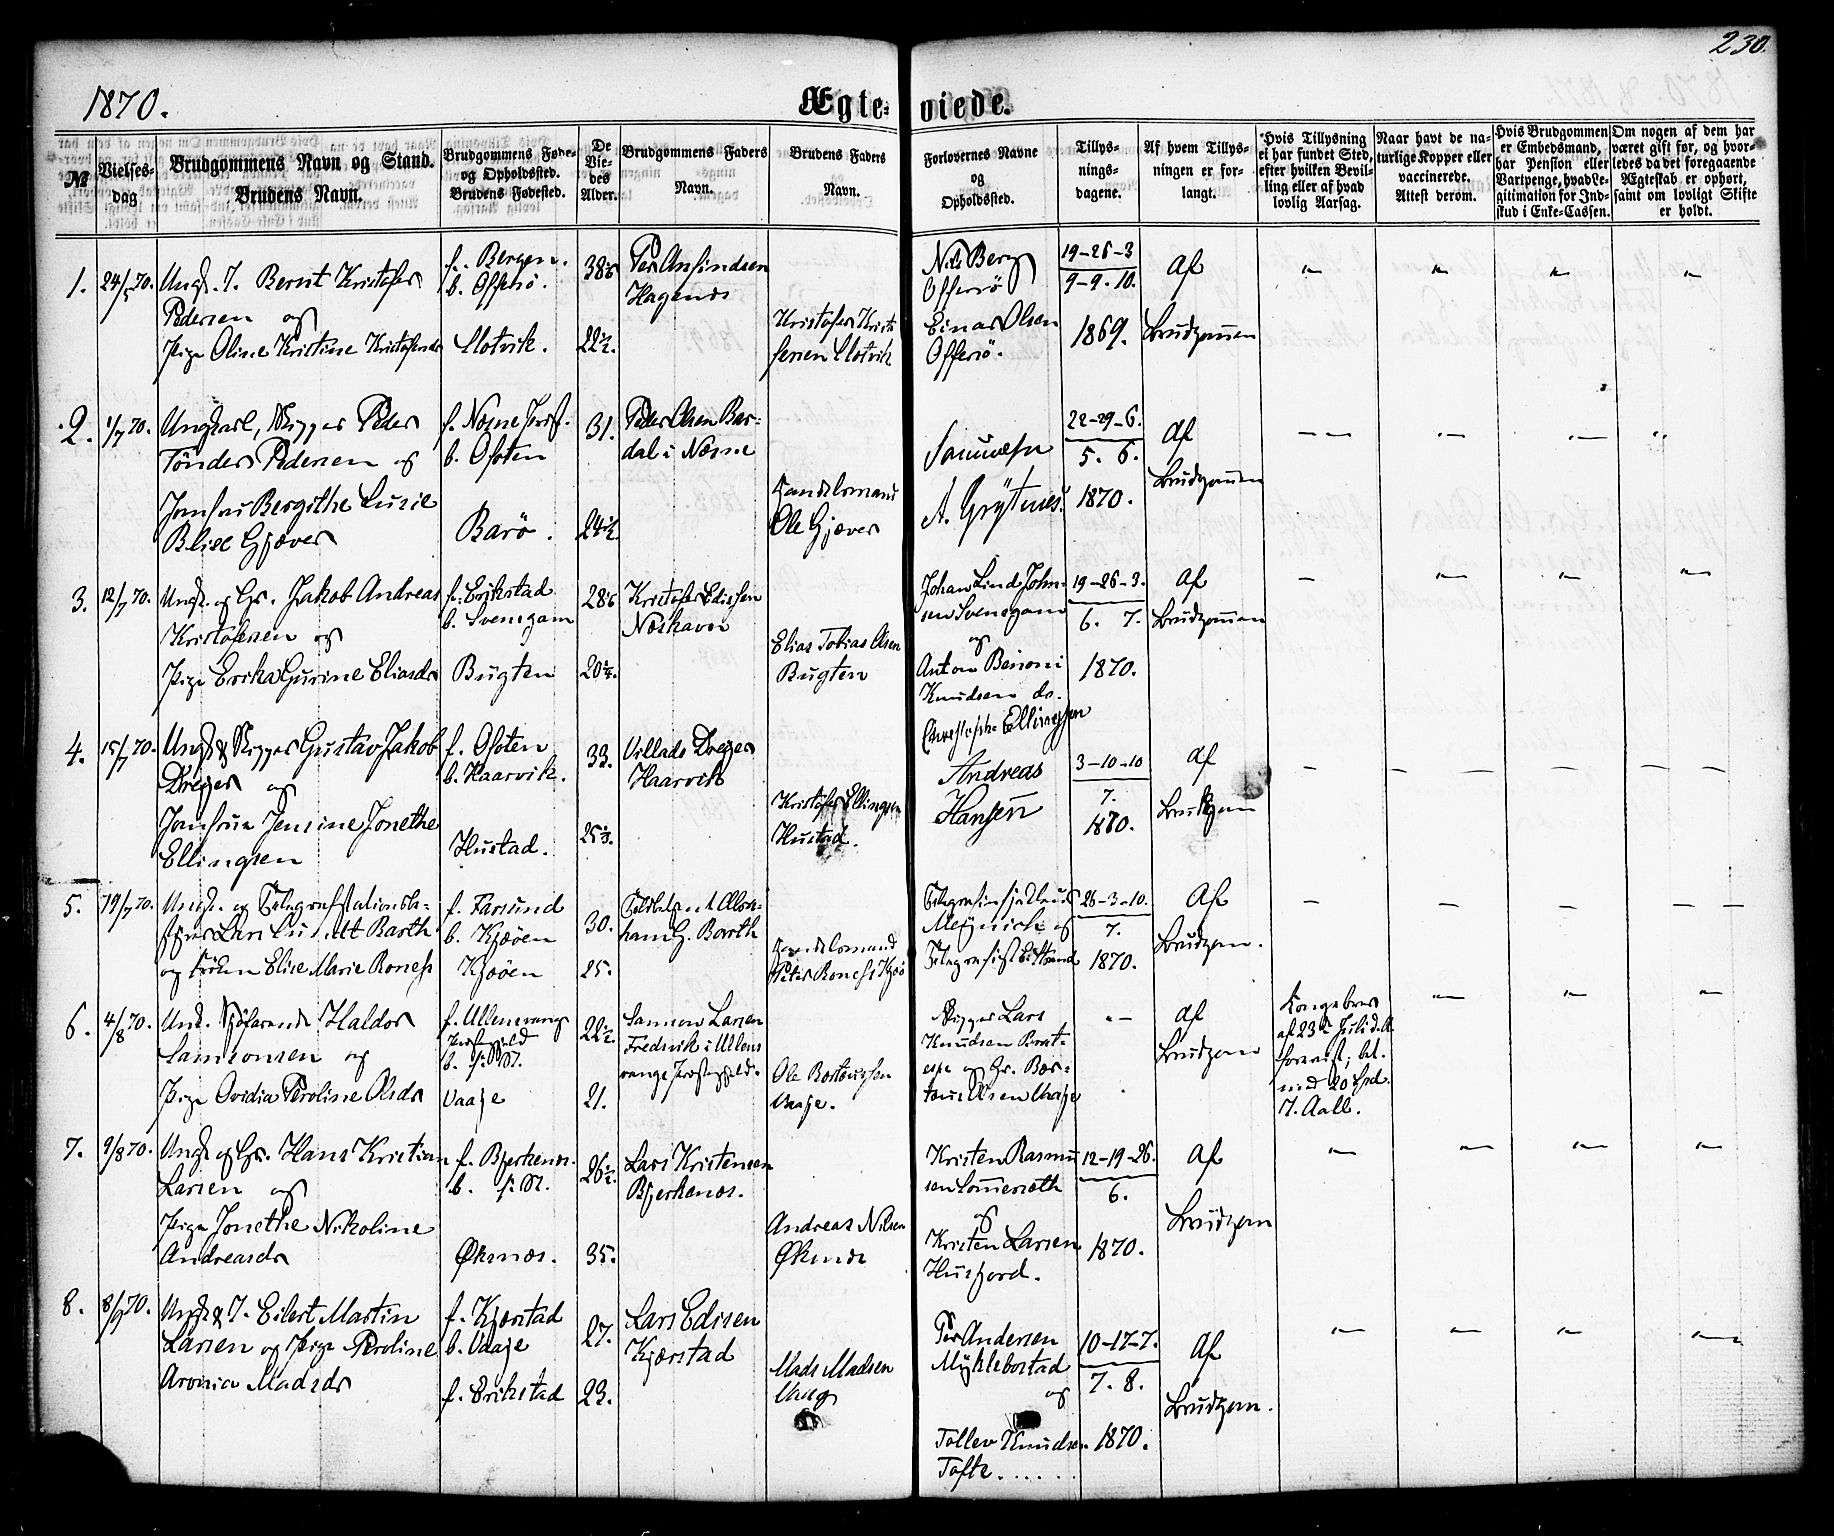 230.
1870.
Ægte-viede.
№
Vielses-
dag
Brudgommens Navn og Stand.
Brudens Navn.
Brudgommens Føde-
og Opholdssted.
Brudens Fødested.
De
Vie-
des
Alder.
Brudgommens Faders
Navn.
Brudens Faders
Navn.
Forlovernes Navne
og
Opholdssted.
Tillys-
nings-
dagene.
Af hvem Tillys-
ningen er for-
langt.
Hvis Tillysning
ei har fundet Sted,
efter hvilken Bevil-
ling eller af hvad
lovlig Aarsag.
Naar havt de na-
turlige Kopper eller
vaccinerede.
Attest derom.
Hvis Brudgommen
er Embedsmand,
har Pension eller
Vartpenge, hvad Le-
gitimation for Ind-
skud i Enke-Cassen.
Om nogen af dem har
været gift før, og hvor-
ledes da det foregaaende
Ægteskab er ophørt,
samt om lovligt Skifte
er holdt.
1.
24/5 70.
Ungk. I. Bernt Kristofer
Pedersen og
Pige Oline Kristine Kristofersdr
f. Bergen.
b. Offersö.
Slotvik.
22½.
Per Amundsen
Hagenes
Kristofer Kristo
fersen Slotvik
Nils Berg
Offersö
Einar Olsen
Offersö.
19-26-3
9-9.10.
1869.
Af
Brudgommen
2.
1/7 70.
Ungkarl, Skipper Peder
Tönder Pedersen og
Jomfru Bergithe Lusie
Blixe Gjæver
f. Nesne Præst.
b. Ofoten
Barö.
31.
24½
Peder Olsen Bar-
dal i Næsne
Handelsmand
Ole Gjæver
A. Grÿtnes.
22-29-6.
5. 6.
1870.
Af
Brudgommen
3.
12/7 70.
Ungk. og Gr. Jakob Andreas
Kristofersen og
Pige Erika Gurine Eliasdr
f. Erikstad
b. Svensgam
Bugten
Kristofer Edissen
Næshavn
Elias Tobias Olsen
Bugten
Johan Lind John-
sen Svensgam
og
Anton Benoni
Knudsen do.
19-26-3.
6. 7.
1870.
Af
Brudgommen
4.
15/7 70.
Ungk & Skipper Gustav Jakob
Dreyer og
Jomfrue Jensine Jonethe
Ellingsen
f. Ofoten
b. Haarvik.
Hustad.
33.
Villads Dreyer
Haarvik
Kristofer Ellingsen
Hustad.
Christopher Ellingsen
Andreas
Hansen
3-10-10
7.
1870.
Af
Brudgom
5.
19/7 70.
Ungk. og Telegrafstationsbe-
styrer Lars Lundt Barth
og Fröken Elise Marie Roness
f. Farsund
b. Kjöen
Kjöen
30.
25.
ham G. Barth
Handelsmand
Peter Roness Kjö
Meÿnich og
Telegrafist C. Strand
26-3-10.
7.
1870.
Af
Brudgom.
6.
4/8 70.
Ungk. Sjöfarende Haldor
Samsonsen og
Pige Ovidia Peroline Olsdr
f. Ullensvang
Præstegjeld
b. s. St.
Vaaje
22½.
21.
Samson Larsen
Fredsvik i Ullens
vangs Præstegjeld.
Ole Bortenssen
Vaaje.
Skipper Lars
Knudsen Brat-
espe og Gr. Bor-
Af
Brudgom
Kongebrev
af 23de Juli d. A.
forevist; bet.
med 20 Spd.
N. Aall.
7.
9/8 70.
Ungk og Gr. Hans Kristian
Larsen og
Pige Jonethe Nikoline
Andreasdr
f. Bjerkenes.
b. s. St.
Öksnæs.
26½.
35.
Lars Kristensen
Bjerkenæs.
Andreas Nilsen
Öksnæs
Kristen Rasmu
sen Sommersæth
og
Kristen Larsen
Husjord.
12-19-26.
6.
1870.
Af
Brudgom
8.
8/9 70.
Ungk & I. Eilert Martin
Larsen og Pige Peroline
Aronia Madsdr
f. Kjærstad
b. Vaaje
f. Erikstad
27.
23.
Lars Edisen
Kjærstad
Mads Madsen
Vaag
Per Andersen
Mÿklebostad
og
Tollev Knudsen
Tofte......
10-17-7.
7. 8.
1870.
Af
Brudgom.